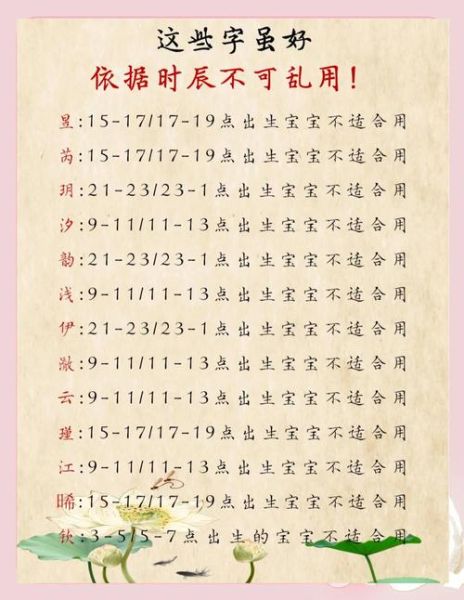 这些字虽好
依据时辰不可乱用!
昱:15-17/17-19点出生宝宝不适合用
芮:15-17/17-19点出生宝宝不适合用
玥:21-23/23-1点出生宝宝不适合用
汐:9-11/11-13点出生宝宝不适合用
韵:21-23/23-1点出生宝宝不适合用
浅:9-11/11-13点出生宝宝不适合用
伊:21-23/23-1点出生宝宝不适合用
潋:9-11/11-13点出生宝宝不适合用
云:9-11/11-13点出生宝宝不适合用
瑾:15-17/17-19点出生宝宝不适合用
江:9-11/11-13点出生宝宝不适合用
晞:15-17/17-19点出生宝宝不适合用
钦:3-5/5-7点出生的宝宝不适合用